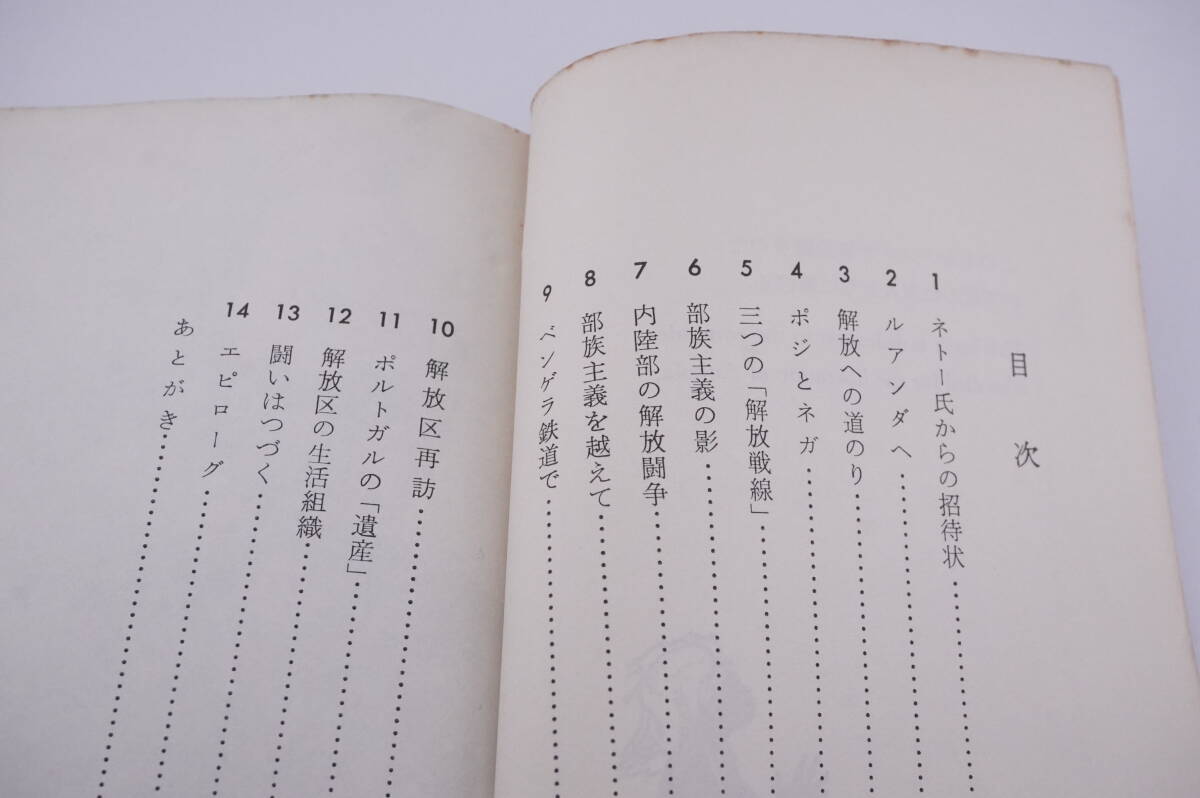 目次
1 ネトー氏からの招待状
2 ルアンダへ
3 解放への道のり
4 ポジとネガ
5 三つの「解放戦線」
6 部族主義の影
7 内陸部の解放闘争
8 部族主義を越えて
9 ベンゲラ鉄道で
10 解放区再訪
11 ポルトガルの「遺産」
12 解放区の生活組織
13 闘いはつづく
14 エピローグ
あとがき